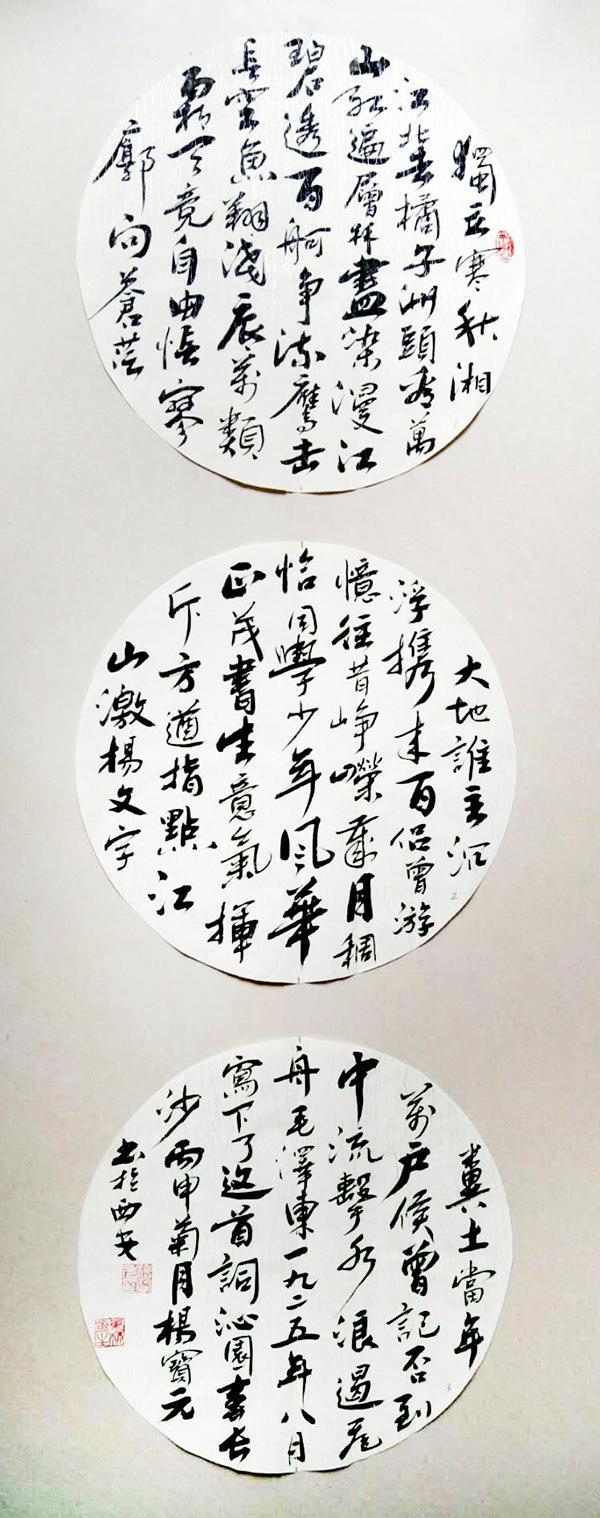 獨立寒秋湘
江北去橘子洲頭看萬
山紅遍層林盡染漫江
碧透百舸争流鷹击
長空魚翔淺底萬類
霜天竟自由悵寥
廓向蒼茫
大地誰主沉
浮攜来百侣曾游
憶往昔崢嶸歲月稠
恰同學少年風華
正茂書生意氣揮
斥方遒指點江
山激揚文字
糞土當年
萬户侯曾記否到
中流擊水浪遏飛
舟毛澤東一九二五年八月
寫下了这首詞沁園春長
沙丙申菊月楊寶元
书於西安